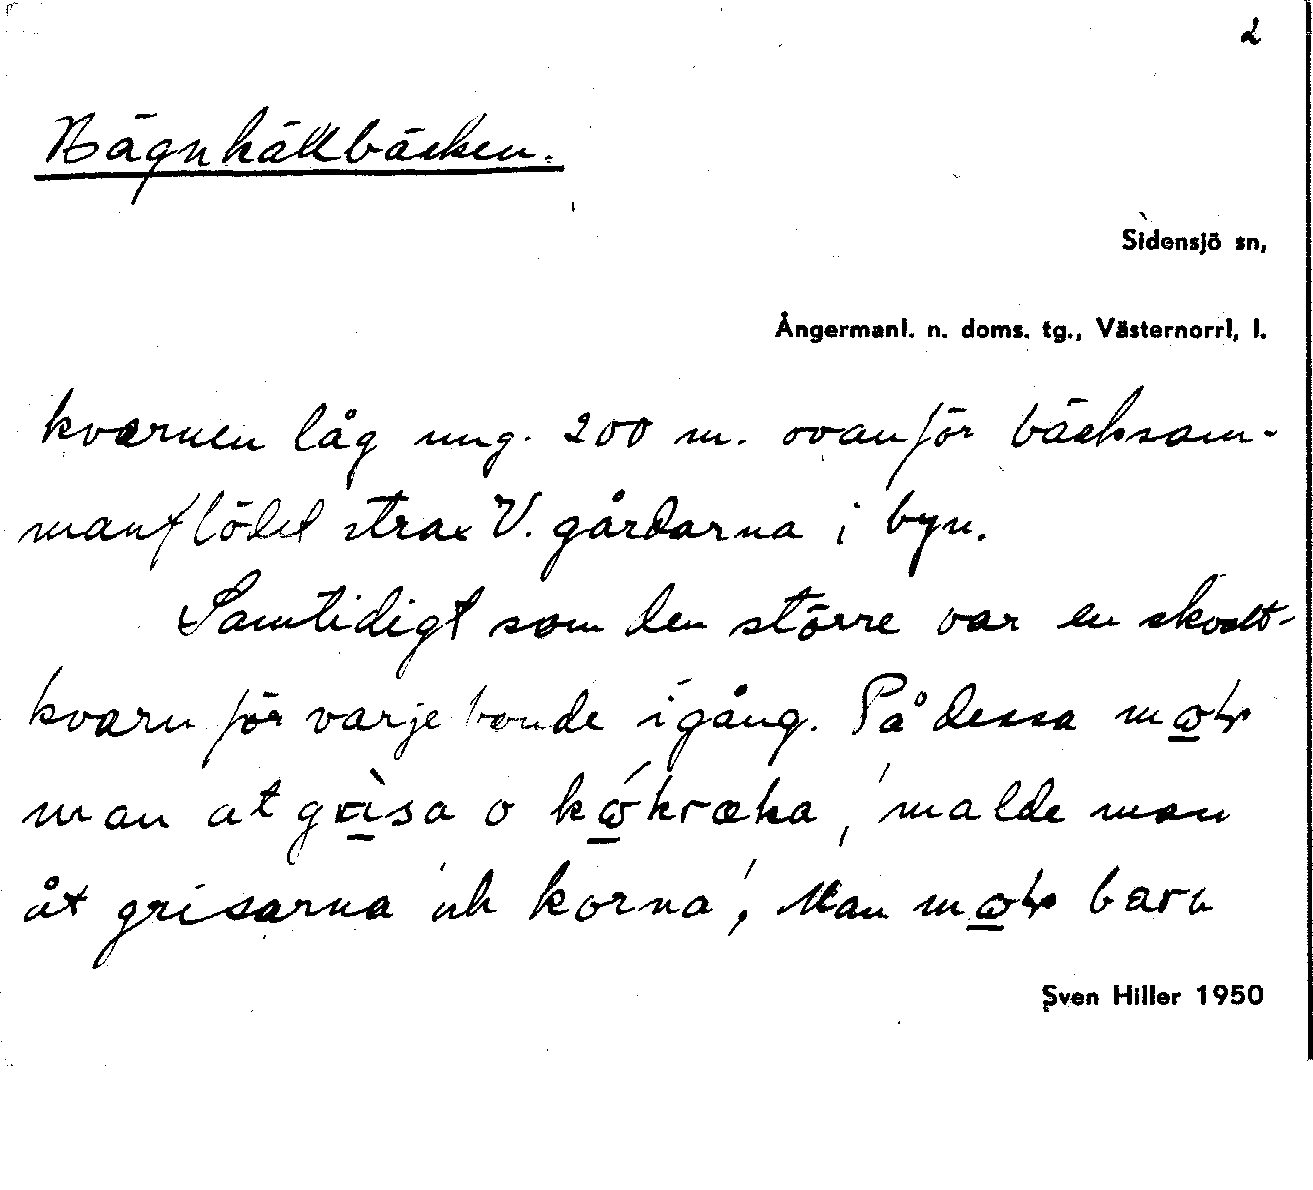 2
Bägnhällbäcken.
Sidensjö sn,
Ångermanl. n. doms. tg., Västernorrl. l.
kvarnen låg ung. 200 m. ovanför bäcksam-
manflödet strax V. gårdarna i byn.
Samtidigt som den större var en skvalt-
kvarn för varje bonde igång. På dessa
man at grìsa o kǿkræka, 'malde man
åt grisarna och korna', Man bara
Sven Hiller 1950